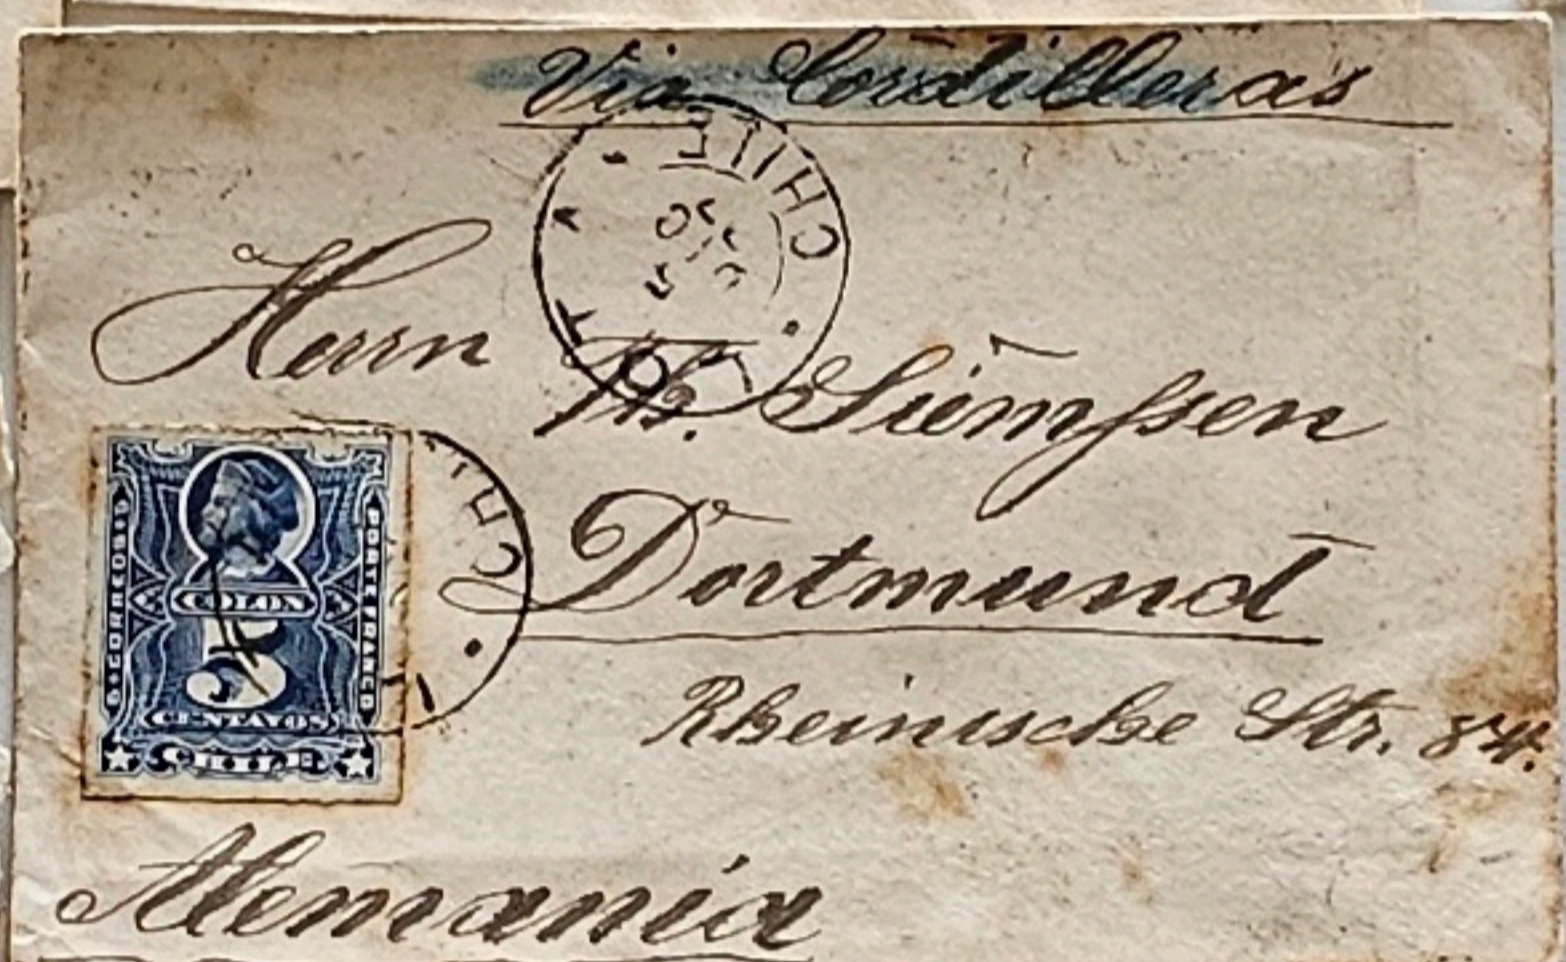 Via Cordilleras
CHILE
LOTA
Herrn
Th. Siemssen
Dortmund
Rheinische Str. 84.
CORREOS
PORTE FRANCO
COLON
5
CENTAVOS
CHILE
Alemania